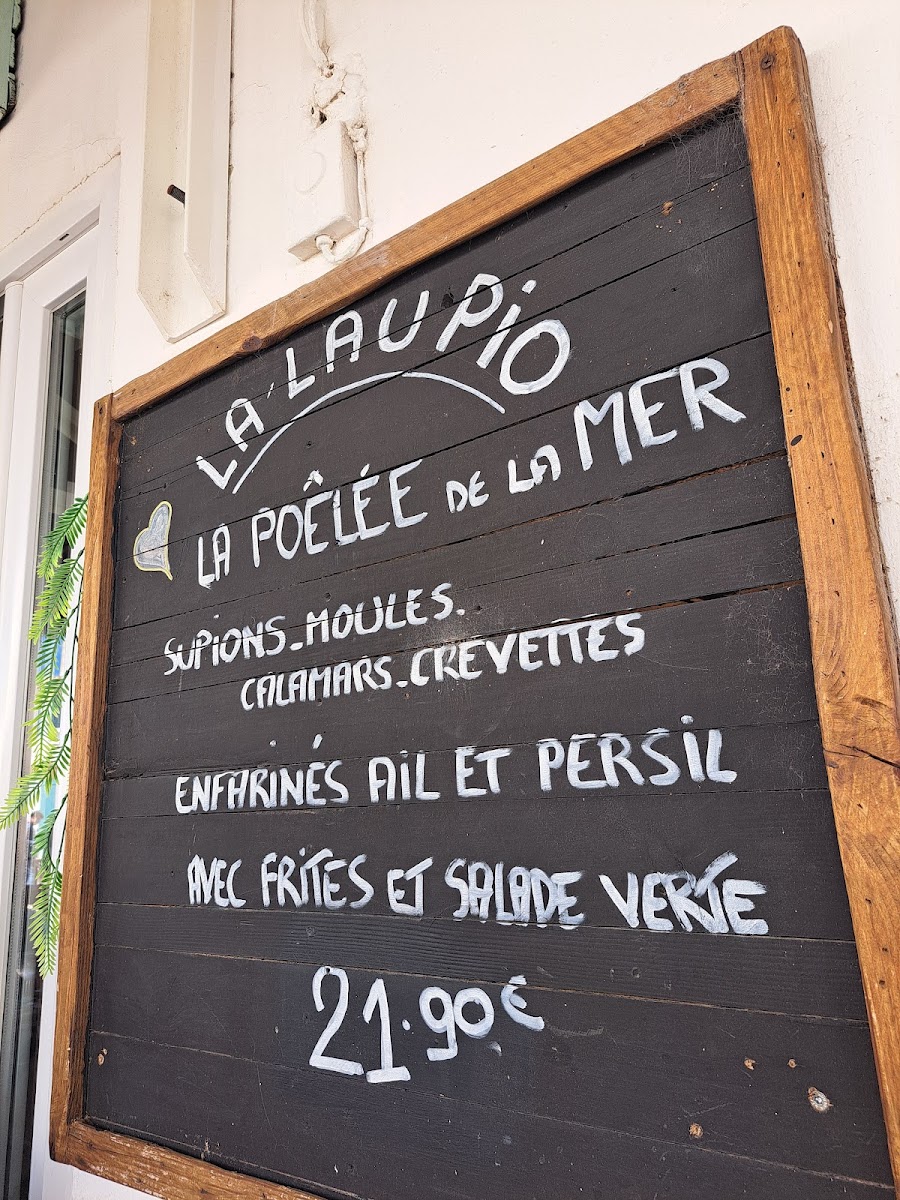 LA LAUPiO
LA POÊLÉE DE LA MER
SUPIONS_MOULES.
CALAMARS_CREVETTES
ENFARINÉS AIL ET PERSIL
AVEC FRITES ET SALADE VERTE
21.90€